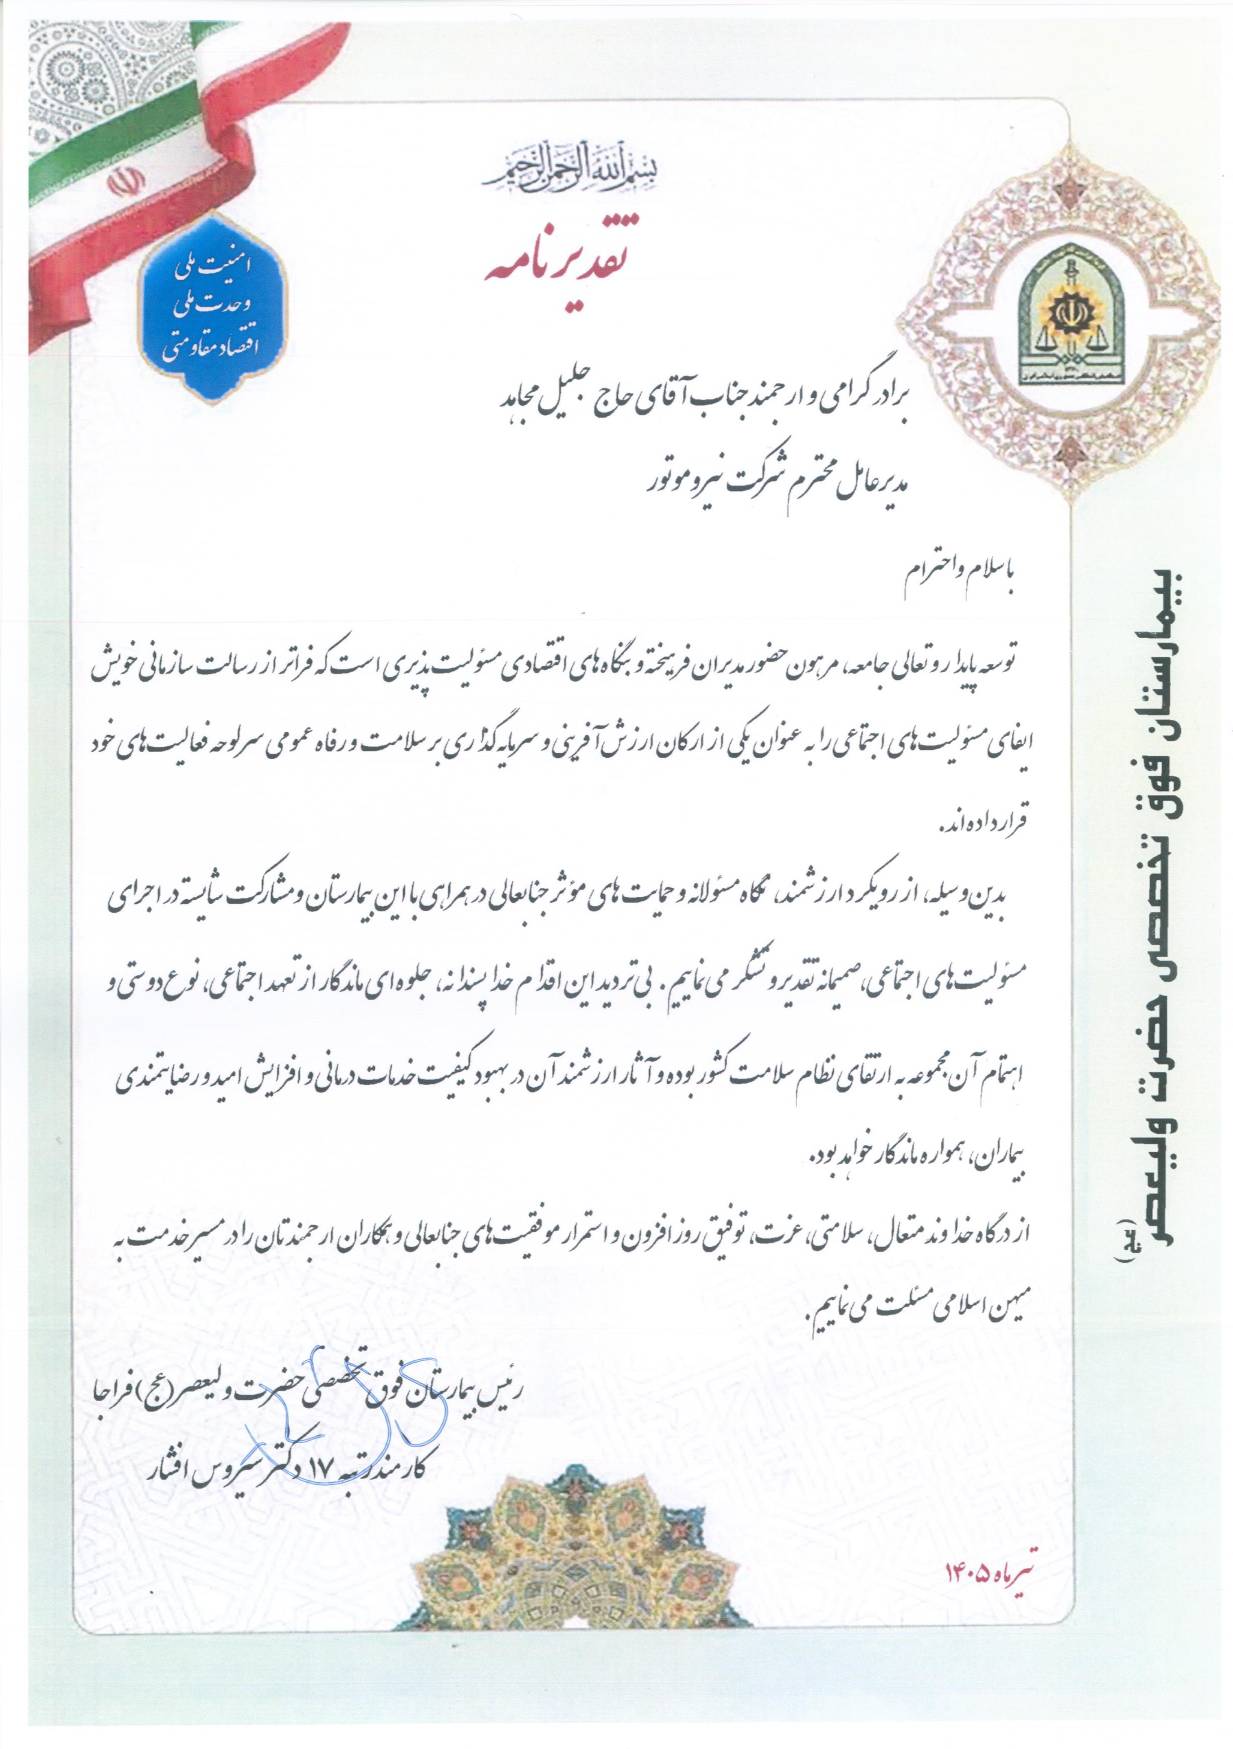 بسم الله الرحمن الرحیم
تقدیرنامه
امنیت ملی
وحدت ملی
اقتصاد مقاومتی
برادر گرامی و ارجمند جناب آقای حاج جلیل مجاهد
مدیرعامل محترم شرکت نیرو موتور
با سلام و احترام
توسعه پایدار و تعالی جامعه، مرهون حضور مدیران فرهیخته و بنگاه های اقتصادی مسئولیت پذیری است که فراتر از رسالت سازمانی خویش
ایفای مسئولیت های اجتماعی را به عنوان یکی از ارکان ارزش آفرینی و سرمایه گذاری بر سلامت و رفاه عمومی سرلوحه فعالیت های خود
قرار داده اند.
بدین وسیله، از رویکرد ارزشمند، نگاه مسئولانه و حمایت های مؤثر جنابعالی در همراهی با این بیمارستان و مشارکت شایسته در اجرای
مسئولیت های اجتماعی، صمیمانه تقدیر و تشکر می نماییم. بی تردید این اقدام خدا پسندانه، جلوه ای ماندگار از تعهد اجتماعی، نوع دوستی و
اهتمام آن مجموعه به ارتقای نظام سلامت کشور بوده و آثار ارزشمند آن در بهبود کیفیت خدمات درمانی و افزایش امید و رضایتمندی
بیماران، همواره ماندگار خواهد بود.
از درگاه خداوند متعال، سلامتی، عزت، توفیق روزافزون و استمرار موفقیت های جنابعالی و همکاران ارجمندتان را در مسیر خدمت به
میهن اسلامی مسئلت می نماییم.
رئیس بیمارستان فوق تخصصی حضرت ولیعصر(عج) فراجا
کارمند رتبه ۱۷ دکتر سیروس افشار
تیرماه ۱۴۰۵
بیمارستان فوق تخصصی حضرت ولیعصر (عج)